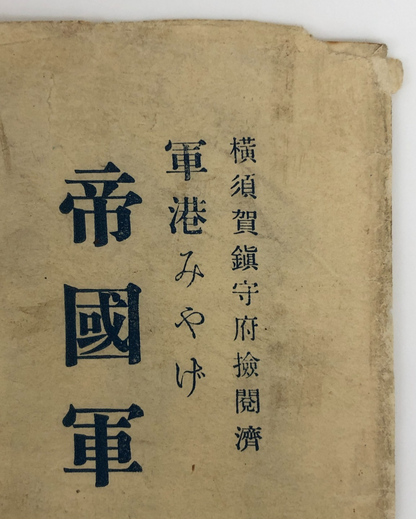 横須賀鎭守府撿閲濟
軍港みやげ
帝國軍